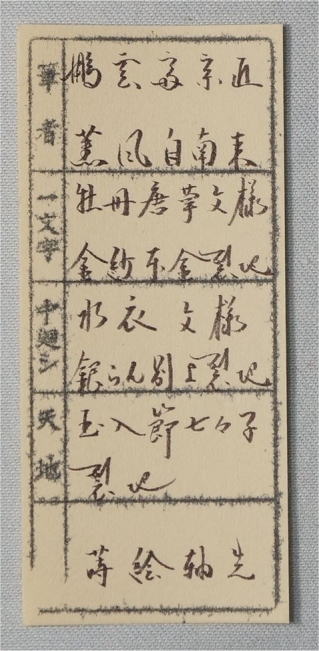 筆者
鵬雲斎宗匠
薫風自南来
一文字
牡丹唐草文様
金紗本金裂地
中廻シ
水衣文様
銀らん別上裂地
天地
玉入節七々子
裂地
蒔絵軸先